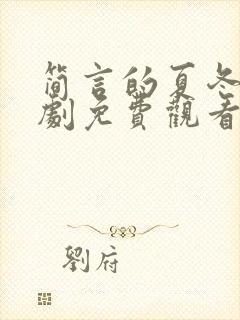 简言的夏冬
劇免費觀看
劉府